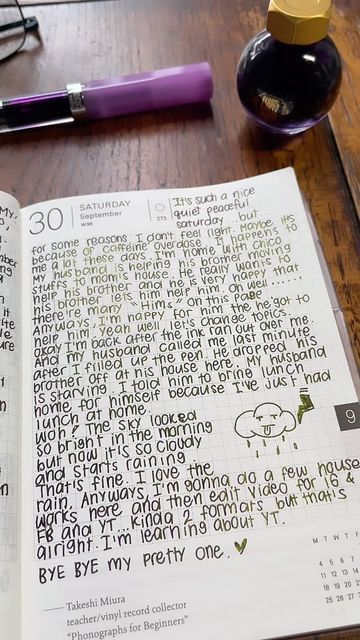 30
SATURDAY
September
W39
273
It's such a nice
quiet peaceful
saturday... but
for some reasons I don't feel right. Maybe its
because of caffeine overdose. It happens to
me a lot these days. I'm home with chico
My husband is helping his brother moving
stuffs to mom's house. He really wants to
help his brother and he is very happy that
his brother lets him help him. Oh well.......
there're many "Hims" on this page
Anyways, I'm happy for him the he got to
help him, yeah well, let's change topics.
Okay I'm back after the ink ran out over me.
And my husband called me last minute
after I filled up the pen. He dropped his
brother off at his house here. My husband
is starving. I told him to bring lunch
home for himself because I've just had
lunch at home.
woh! The sky looked
so bright in the morning
but now it's so cloudy
and starts raining
That's fine. I love the
rain. Anyways, I'm gonna do a few house
works here and then edit video for IG &
FB and YT... kinda 2 formats but that's
alright. I'm learning about YT.
BYE BYE my pretty one.
9
Takeshi Miura
teacher/vinyl record collector
"Phonographs for Beginners"
M T W T F
4 5 6 7 8
11 12 13 14
18 19 20 21
25 26 27 28